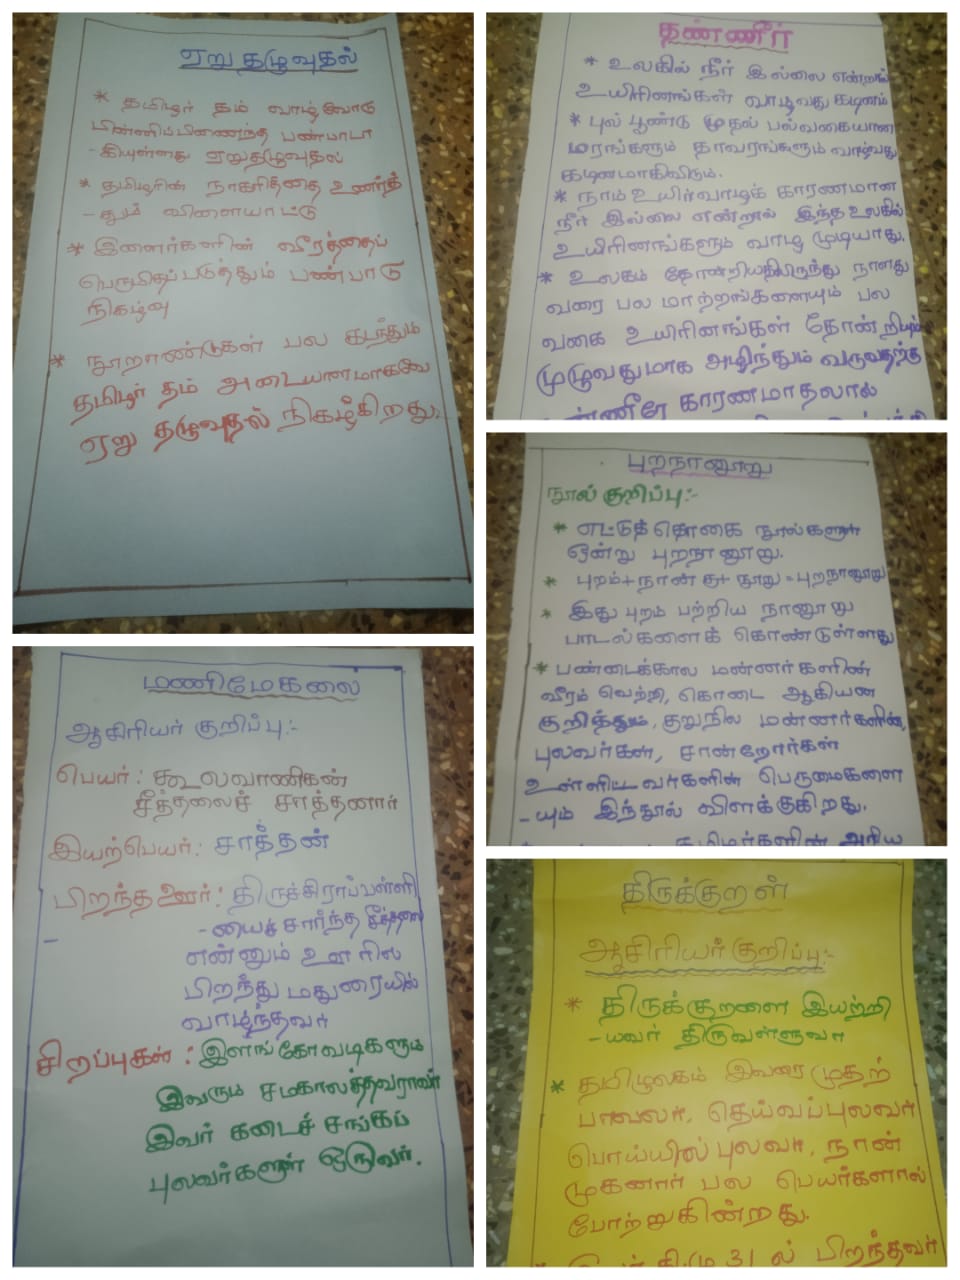 ஏறு தழுவுதல்
* தமிழர் தம் வாழ்வோடு
பின்னிப்பிணைந்த பண்பாடா
- கியுள்ளது ஏறுதழுவுதல்
* தமிழரின் நாகரித்தை உணர்த்
- தும் விளையாட்டு
* இளைர்களின் வீரத்தைப்
பெருமிதப்படுத்தும் பண்பாடு
நிகழ்வு
* நூறாண்டுகள் பல கடந்தும்
தமிழர் தம் அடையானமாகவே
ஏறு தழுவுதல் நிகழ்கிறது.
மணிமேகலை
ஆகிரியர் குறிப்பு:-
பெயர்: கூலவாணிகன்
சீத்தலைச் சாத்தனார்
இயற்பெயர்: சாத்தன்
பிறந்த ஊர்: திருச்சிராப்பள்ளி
- யைச் சார்ந்த சீத்தலை
என்னும் ஊரில்
பிறந்து மதுரையில்
வாழ்ந்தவர்
சிறப்புகள்: இளங்கோவடிகளும்
இவரும் சமகாலத்தவராவர்
இவர் கடைச் சங்கப்
புலவர்களுள் ஒருவர்.
தண்ணீர்
* உலகில் நீர் இல்லை என்றால்
உயிரினங்கள் வாழ்வது கடினம்
* புல் பூண்டு முதல் பல்வகையான
மரங்களும் தாவரங்களும் வாழ்வது
கடினமாகிவிடும்.
* நாம் உயிர்வாழக் காரணமான
நீர் இல்லை என்றால் இந்த உலகில்
உயிரினங்களும் வாழ முடியாது.
* உலகம் தோன்றியதிலிருந்து நாளது
வரை பல மாற்றங்களையும் பல
வகை உயிரினங்கள் தோன்றியும்
முழுவதுமாக அழிந்தும் வருவதற்கு
தண்ணீரே காரணமாதலால்
புறநானூறு
நூல் குறிப்பு:-
* எட்டுத்தொகை நூல்களுள்
ஒன்று புறநானூறு.
* புறம்+நான்கு+நூறு=புறநானூறு
* இது புறம் பற்றிய நானூறு
பாடல்களைக் கொண்டுள்ளது
* பண்டைக்கால மன்னர்களின்
வீரம் வெற்றி, கொடை ஆகியன
குறித்தும், குறுநில மன்னர்களின்,
புலவர்கள், சான்றோர்கள்
உள்ளியவர்களின் பெருமைகளை
- யும் இந்நூல் விளக்குகிறது.
தமிழர்களின் அரிய
திருக்குறள்
ஆசிரியர் குறிப்பு:-
* திருக்குறளை இயற்றி
- யவர் திருவள்ளுவர்
* தமிழுலகம் இவரை முதற்
பாவலர், தெய்வப்புலவர்
பொய்யில் புலவர், நான்
முகனார் பல பெயர்களால்
போற்றுகின்றது.
கி.மு 31 ல் பிறந்தவர்